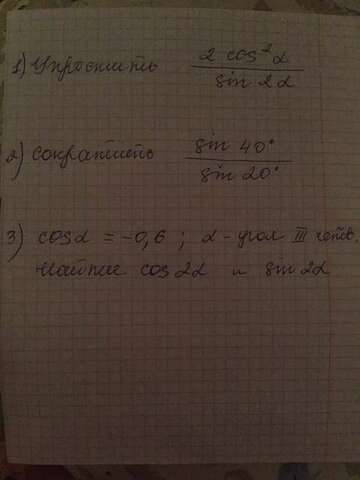 1) Упростить 2 cos²α / sin 2α
2) Сократить sin 40° / sin 20°
3) cosα = -0,6 ; α - угол III четв.
Найти cos 2α и sin 2α